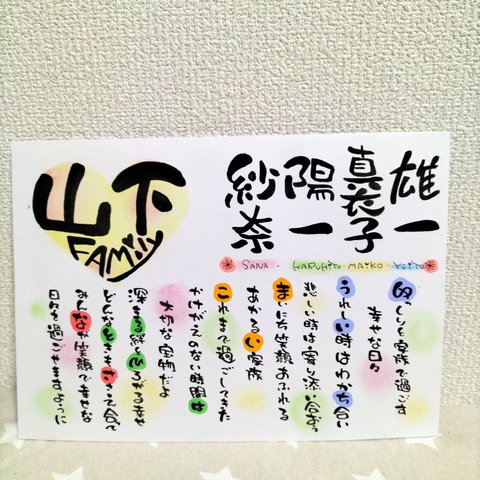 山下
FAMiLY
雄一
真衣子
陽一
紗奈
SANA・HARUHiTO・MAiKO・
ゆっくりと家族で過ごす
幸せな日々
うれしい時はわかち合い
悲しい時は寄り添い合おう
まいにち笑顔あふれる
あかるい家族
これまで過ごしてきた
かけがえのない時間は
大切な宝物だよ
深まる絆とひろがる幸せ
どんなときもささえ合って
みんなが笑顔で幸せな
日々過ごせますように